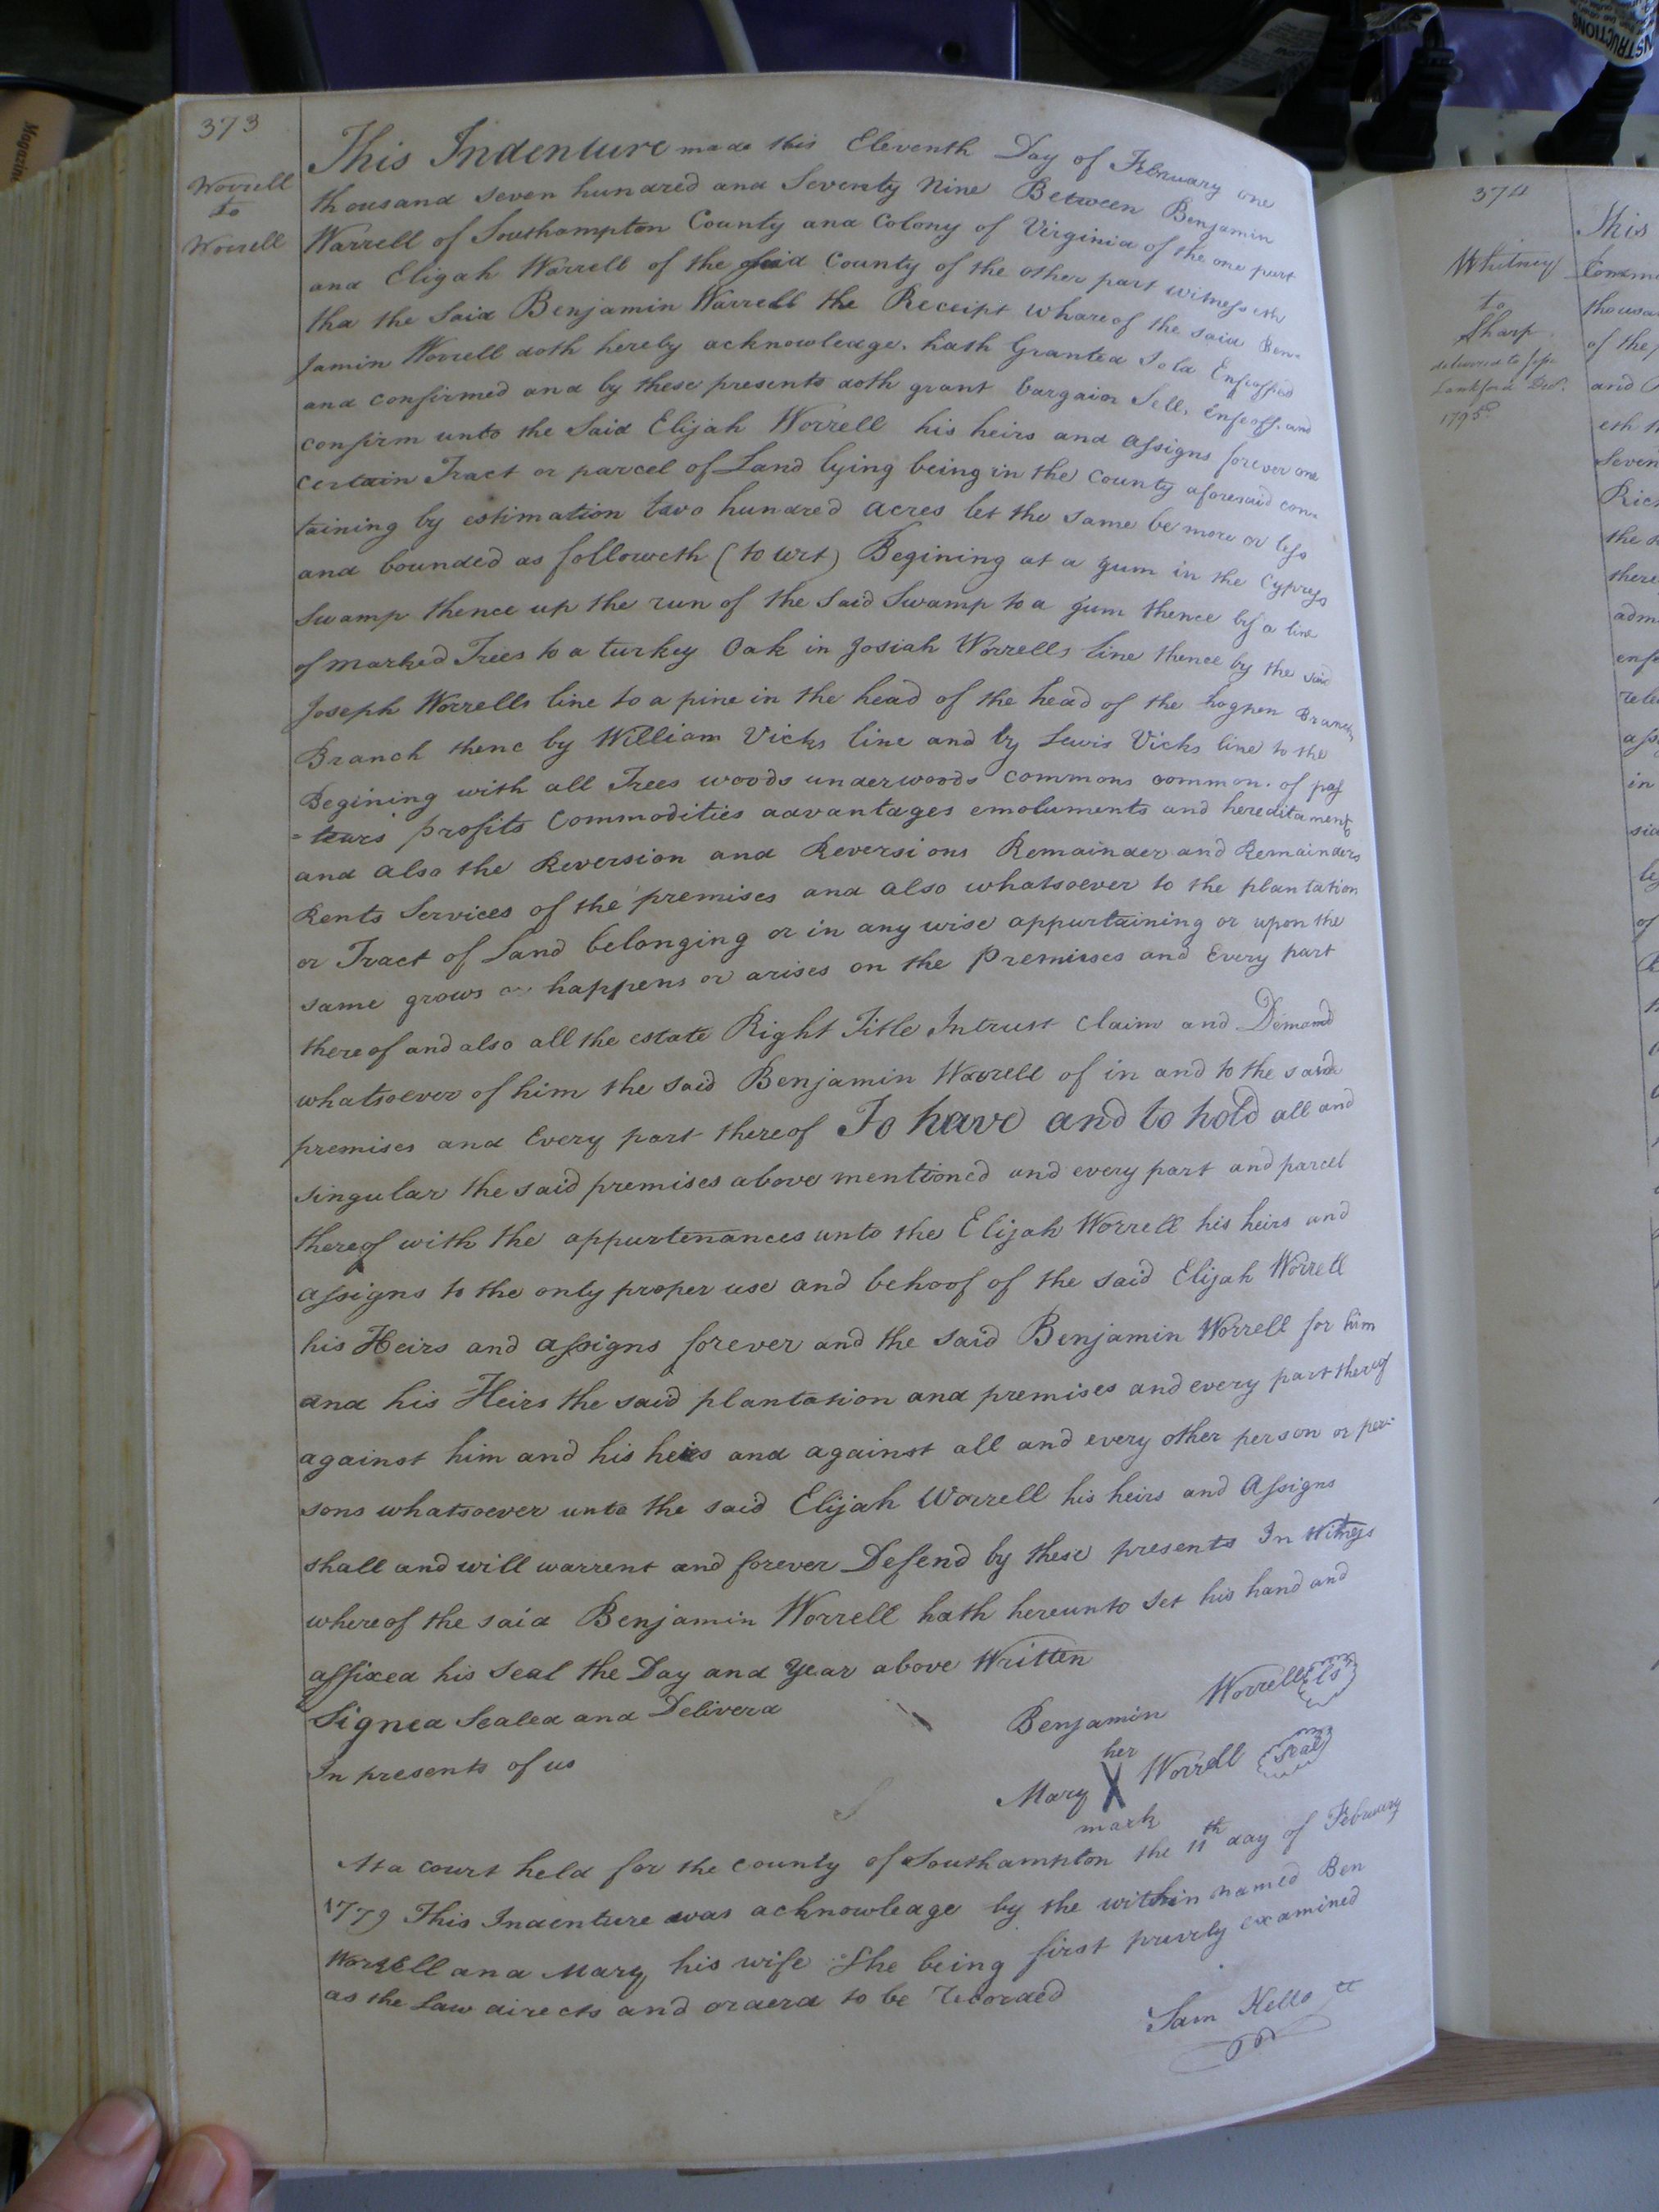 373
Worrell
to
Worrell
This Indenture made this Eleventh Day of February one
thousand seven hundred and Seventy Nine Between Benjamin
Warrell of Southampton County and Colony of Virginia of the one part
and Eligah Warrell of the said County of the other part witnesseth
tha the Said Benjamin Warrell the Receipt whareof the said Ben-
jamin Worrell doth hereby acknowledge. hath Granted Sold Enfeoffed
and confirmed and by these presents doth grant bargain Sell, enfeoff, and
confirm unto the Said Elijah Worrell his heirs and assigns forever one
certain Tract or parcel of Land lying being in the County aforesaid con-
taining by estimation two hundred acres let the same be more or less
and bounded as followeth (to wit) Begining at a gum in the Cypress
Swamp thence up the run of the Said Swamp to a gum thence by a line
of marked Trees to a turkey Oak in Josiah Worrells line thence by the said
Joseph Worrells line to a pine in the head of the head of the hogpen Branch
Branch thenc by William Vicks line and by Lewis Vicks line to the
Begining with all Trees woods underwoods commons common. of pas
=tears profits Commodities advantages emoluments and hereditaments
and also the Reversion and Reversions Remainder and Remainders
Rents Services of the premises and also whatsoever to the plantation
or Tract of Land belonging or in any wise appurtaining or upon the
same grows or happens or arises on the Premises and Every part
thereof and also all the estate Right Title Intrust Claim and Demand
whatsoever of him the said Benjamin Worrell of in and to the said
premises and Every part thereof To have and to hold all and
singular the said premises above mentioned and every part and parcel
thereof with the appurtenances unto the Elijah Worrell his heirs and
assigns to the only proper use and behoof of the said Elijah Worrell
his Heirs and assigns forever and the said Benjamin Worrell for him
and his Heirs the said plantation and premises and every part thereof
against him and his heirs and against all and every other person or per-
sons whatsoever unto the said Elijah Worrell his heirs and Assigns
shall and will warrent and forever Defend by these presents In Witness
whereof the said Benjamin Worrell hath hereunto set his hand and
affixed his seal the Day and Year above Written
Signed Sealed and Deliverd
In presents of us
Benjamin Worrell Ls
her
Mary X Worrell Seal
mark
At a court held for the county of Southampton the 11th day of February
1779 This Indenture was acknowledge by the within named Ben
Worrell and Mary his wife She being first privily examined
as the Law directs and orderd to be Recorded
Sam Kello CC
374
Whitney
to
Sharp
delivered to
Lankford
1795
This
Comm
thousa
of the
and
eth
Seven
Rich
the
there
adm
enf
rele
ass
in
of
INSTRUCTIONS
Magazin